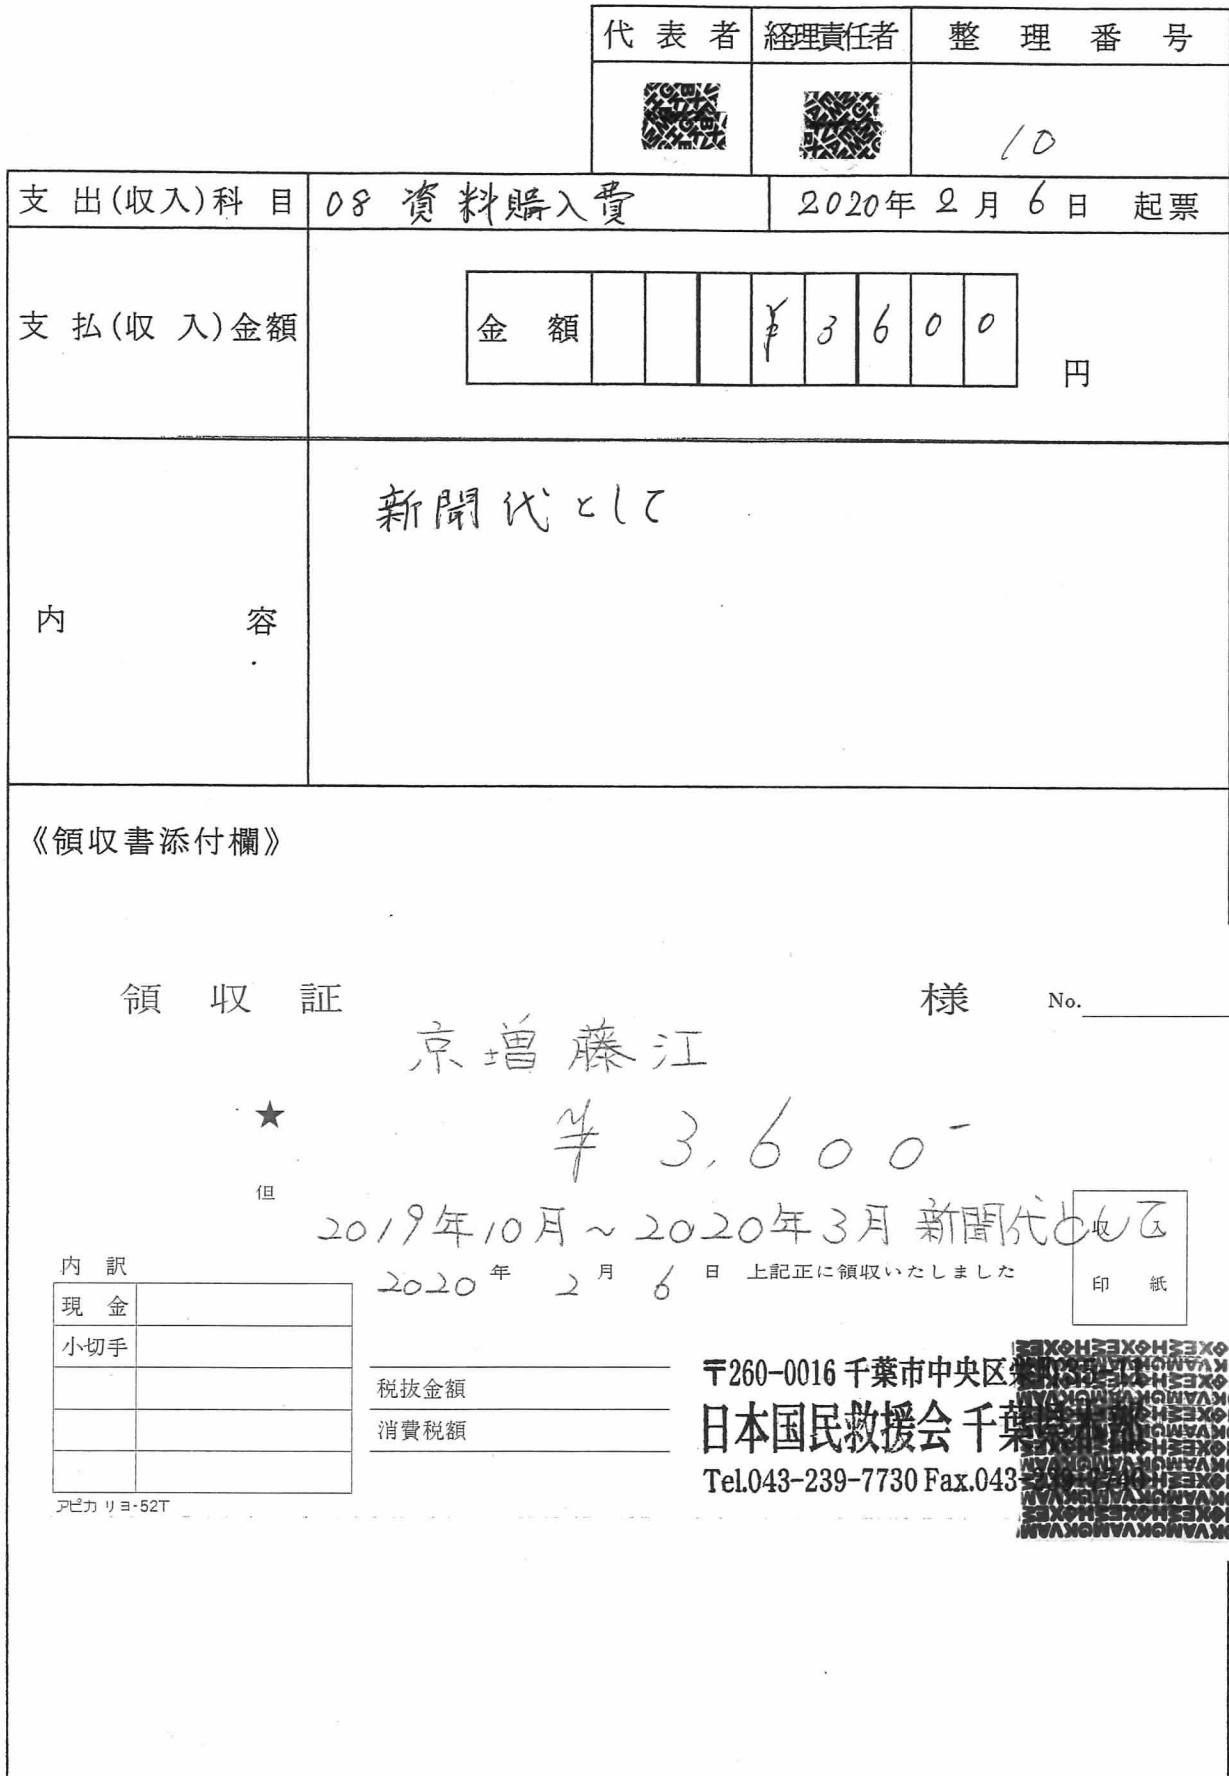 代表者 経理責任者 整理番号
10
支出(収入)科目 08 資料購入費 2020年2月6日 起票
支払(収入)金額 金額 ¥3600 円
内容 新聞代として
《領収書添付欄》
領収証 様 No.
京増藤江
★ ¥3,600-
但 2019年10月~2020年3月 新聞代として
収入
印紙
2020年2月6日 上記正に領収いたしました
内訳
現金
小切手
税抜金額
消費税額
〒260-0016 千葉市中央区
日本国民救援会 千葉
Tel.043-239-7730 Fax.043-
アピカ リヨ-52T